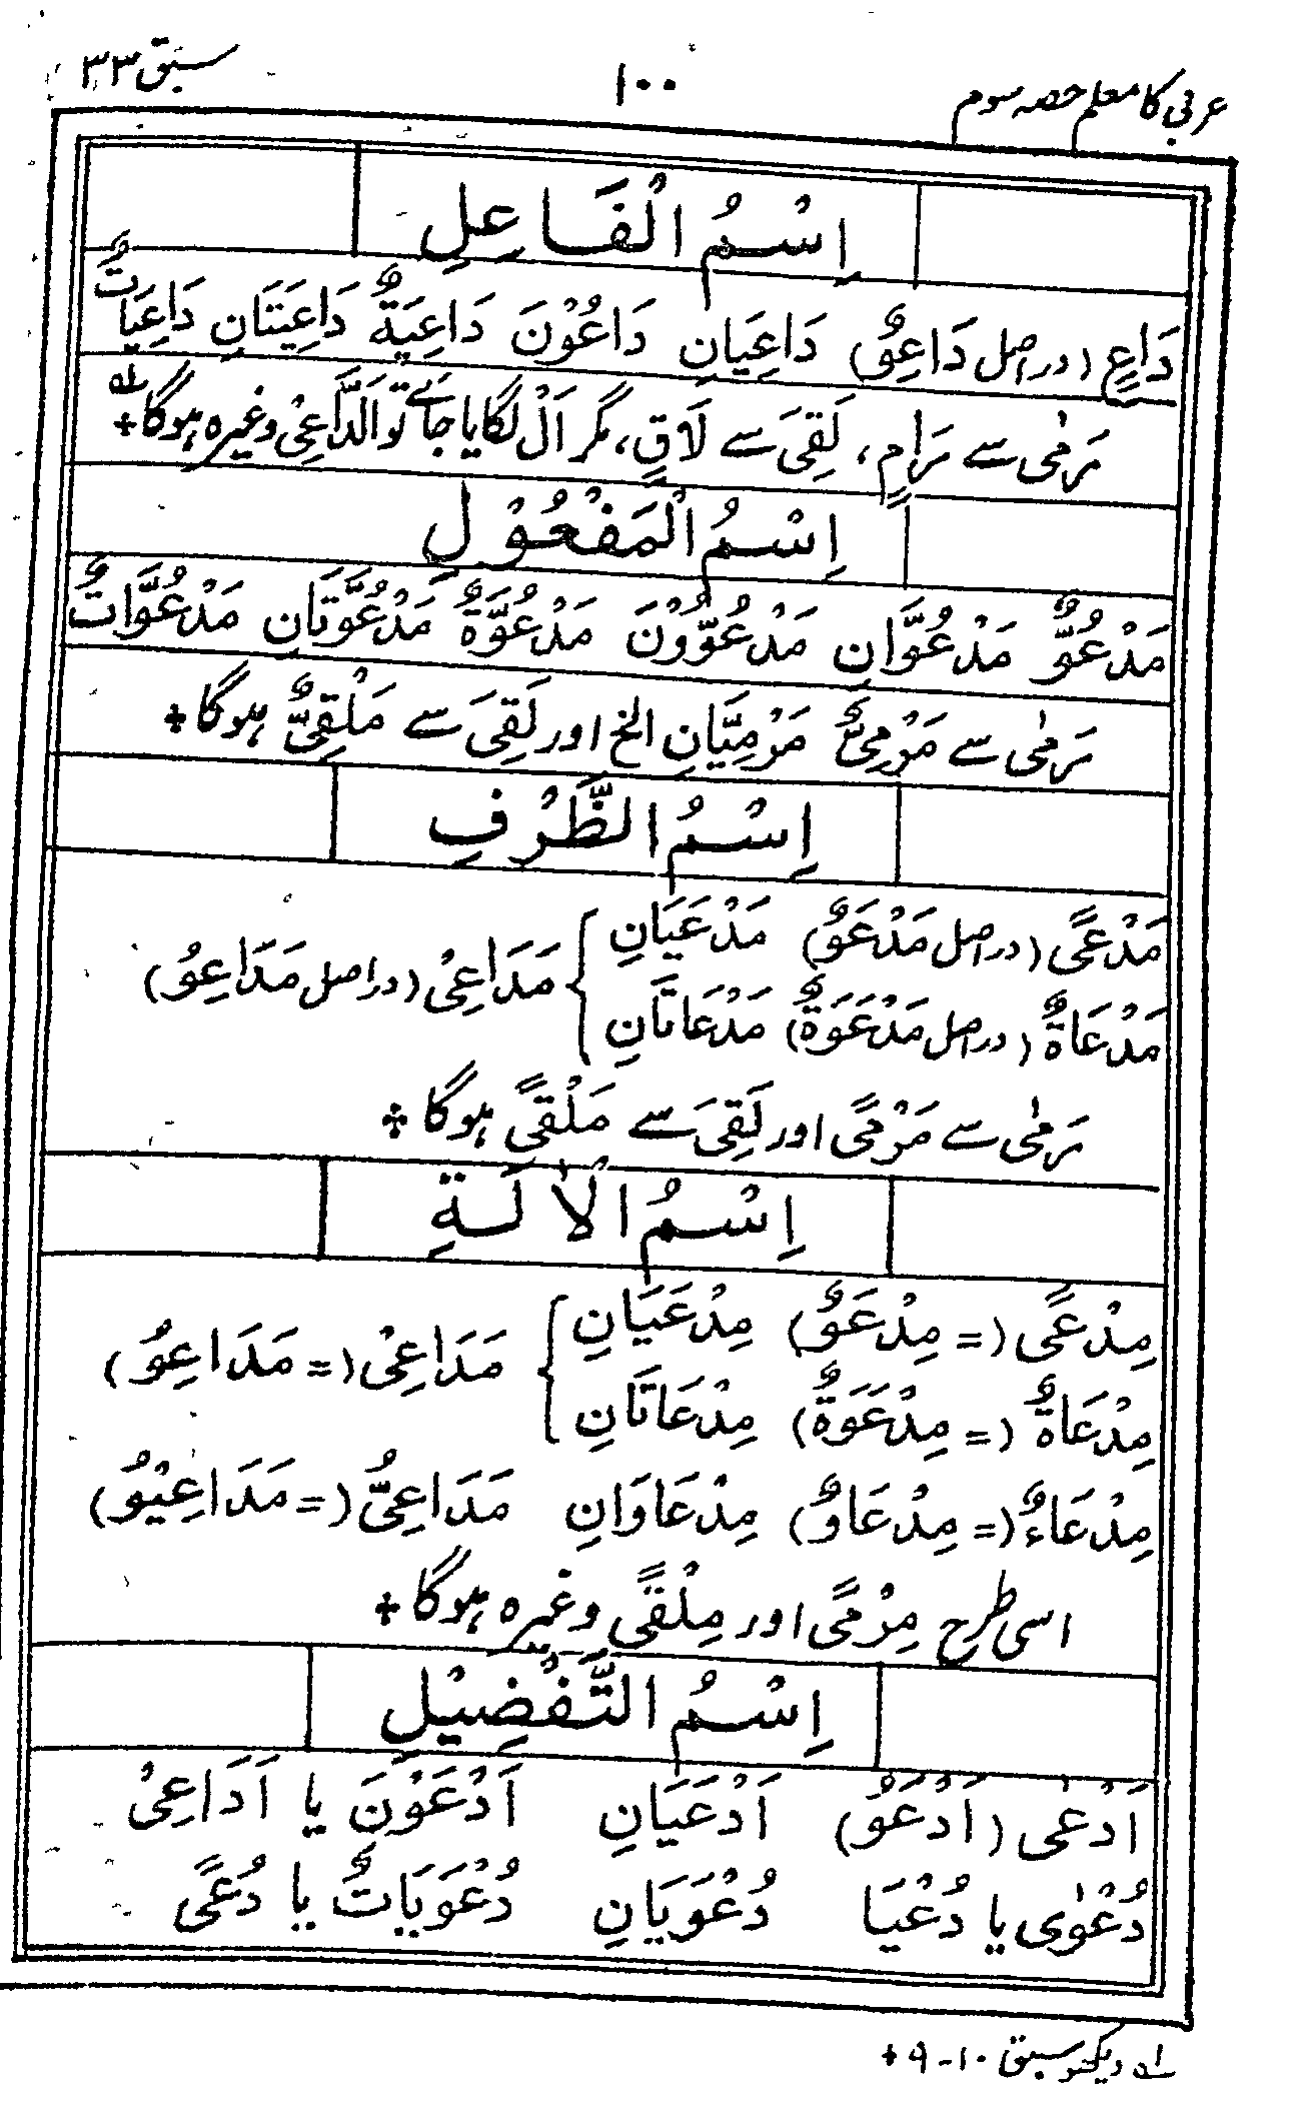 عربی کا معلم حصہ سوم ۱۰۰ سبق ۳۳
اِسْمُ الْفَاعِلِ
دَاعٍ (در اصل دَاعِوٌ) دَاعِيَانِ دَاعُوْنَ دَاعِيَةٌ دَاعِيَتَانِ دَاعِيَاتٌ
رَمٰی سے رَامٍ، لَقِیَ سے لَاقٍ، مگر اَلْ لگایا جائے تو اَلدَّاعِیْ وغیرہ ہوگا لہ +
اِسْمُ الْمَفْعُوْلِ
مَدْعُوٌّ مَدْعُوَّانِ مَدْعُوُّوْنَ مَدْعُوَّةٌ مَدْعُوَّتَانِ مَدْعُوَّاتٌ
رَمٰی سے مَرْمِیٌّ مَرْمِيَّانِ الخ اور لَقِیَ سے مَلْقِیٌّ ہوگا +
اِسْمُ الظَّرْفِ
مَدْعًی (در اصل مَدْعَوٌ) مَدْعَيَانِ
مَدْعَاةٌ (در اصل مَدْعَوَةٌ) مَدْعَاتَانِ } مَدَاعِیْ (در اصل مَدَاعِوُ)
رَمٰی سے مَرْمًی اور لَقِیَ سے مَلْقًی ہوگا +
اِسْمُ الْاٰلَةِ
مِدْعًی (= مِدْعَوٌ) مِدْعَيَانِ
مِدْعَاةٌ (= مِدْعَوَةٌ) مِدْعَاتَانِ } مَدَاعِیْ (= مَدَاعِوُ)
مِدْعَاءٌ (= مِدْعَاوٌ) مِدْعَاوَانِ مَدَاعِیُّ (= مَدَاعِيْوُ)
اسی طرح مِرْمًی اور مِلْقًی وغیرہ ہوگا +
اِسْمُ التَّفْضِيْلِ
اَدْعٰی (اَدْعَوُ) اَدْعَيَانِ اَدْعَوْنَ یا اَدَاعِیْ
دُعْوٰی یا دُعْيَا دُعْوَيَانِ دُعْوَيَاتٌ یا دُعًی
لہ دیکھو سبق ۱۰-۹ +